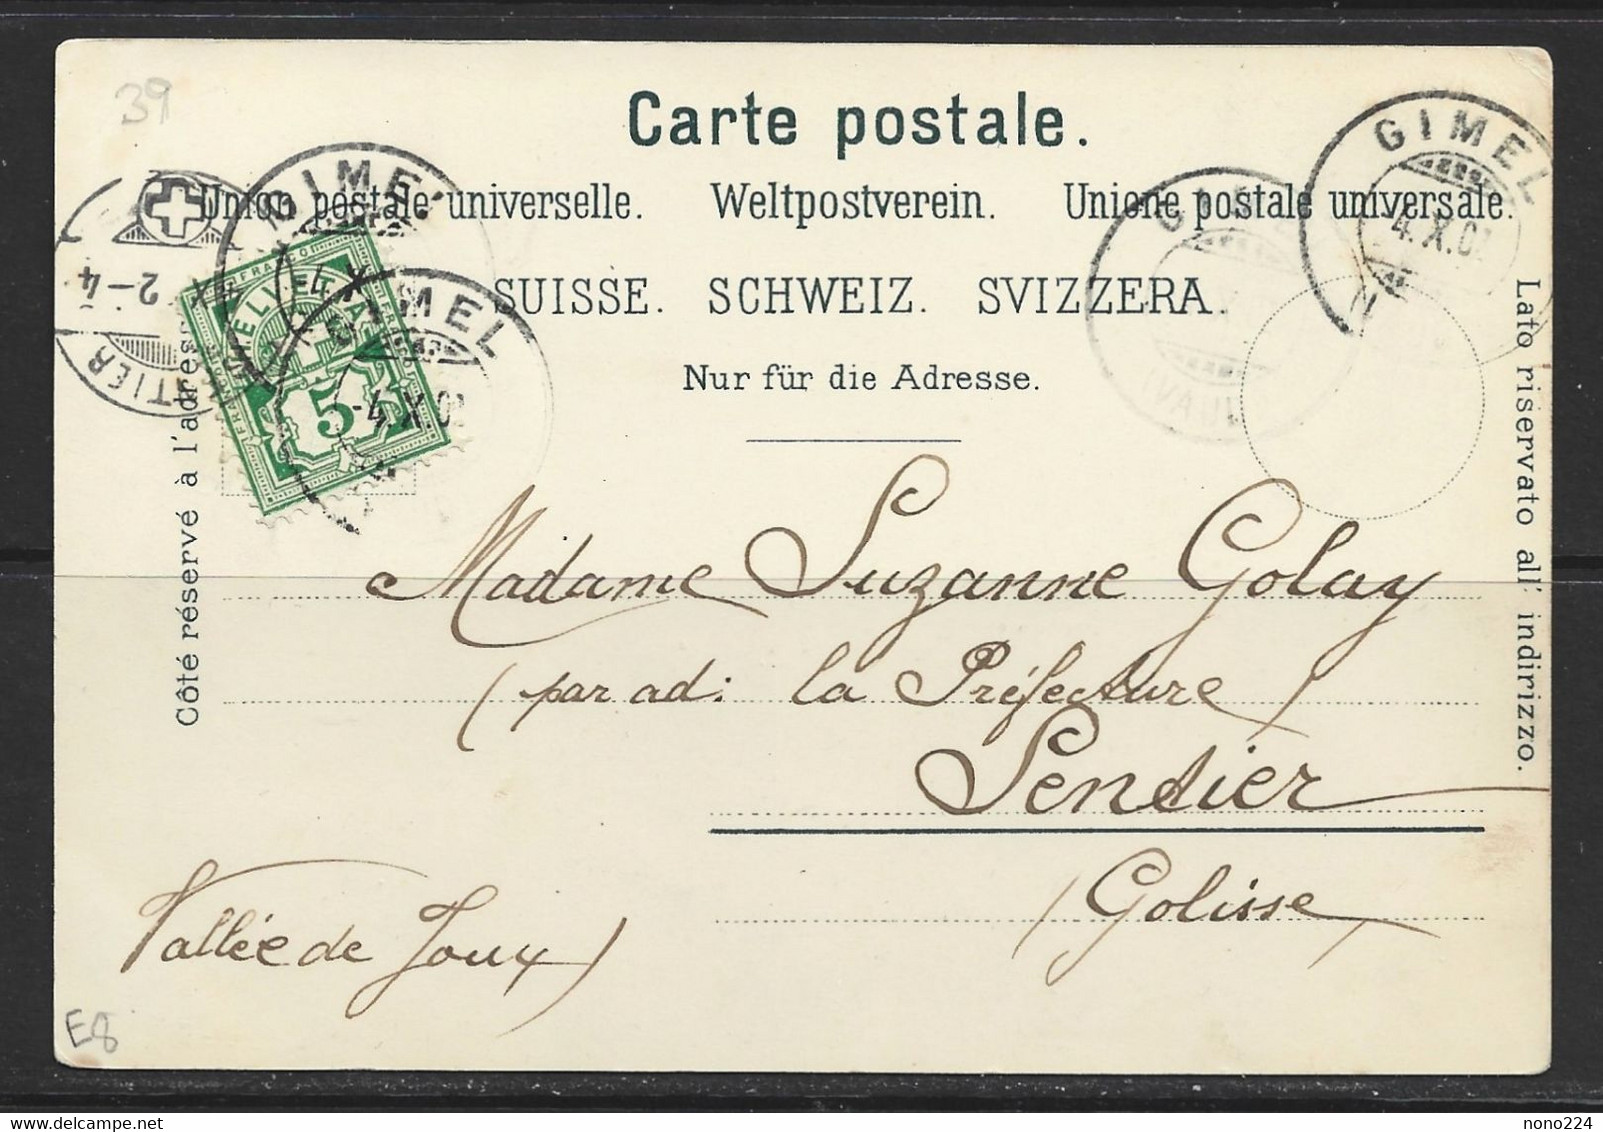 39
Carte postale.
Union postale universelle. Weltpostverein. Unione postale universale.
SUISSE. SCHWEIZ. SVIZZERA.
Nur für die Adresse.
Côté réservé à l'adresse
Lato riservato all' indirizzo.
GIMEL
GIMEL
-4.X.0
GIMEL
4.X.0
2-4
FRANCO
HELVETIA
5
Madame Suzanne Golay
(par ad: la Préfecture)
Sentier
(Golisse)
Vallée de Joux)
E8
nono224